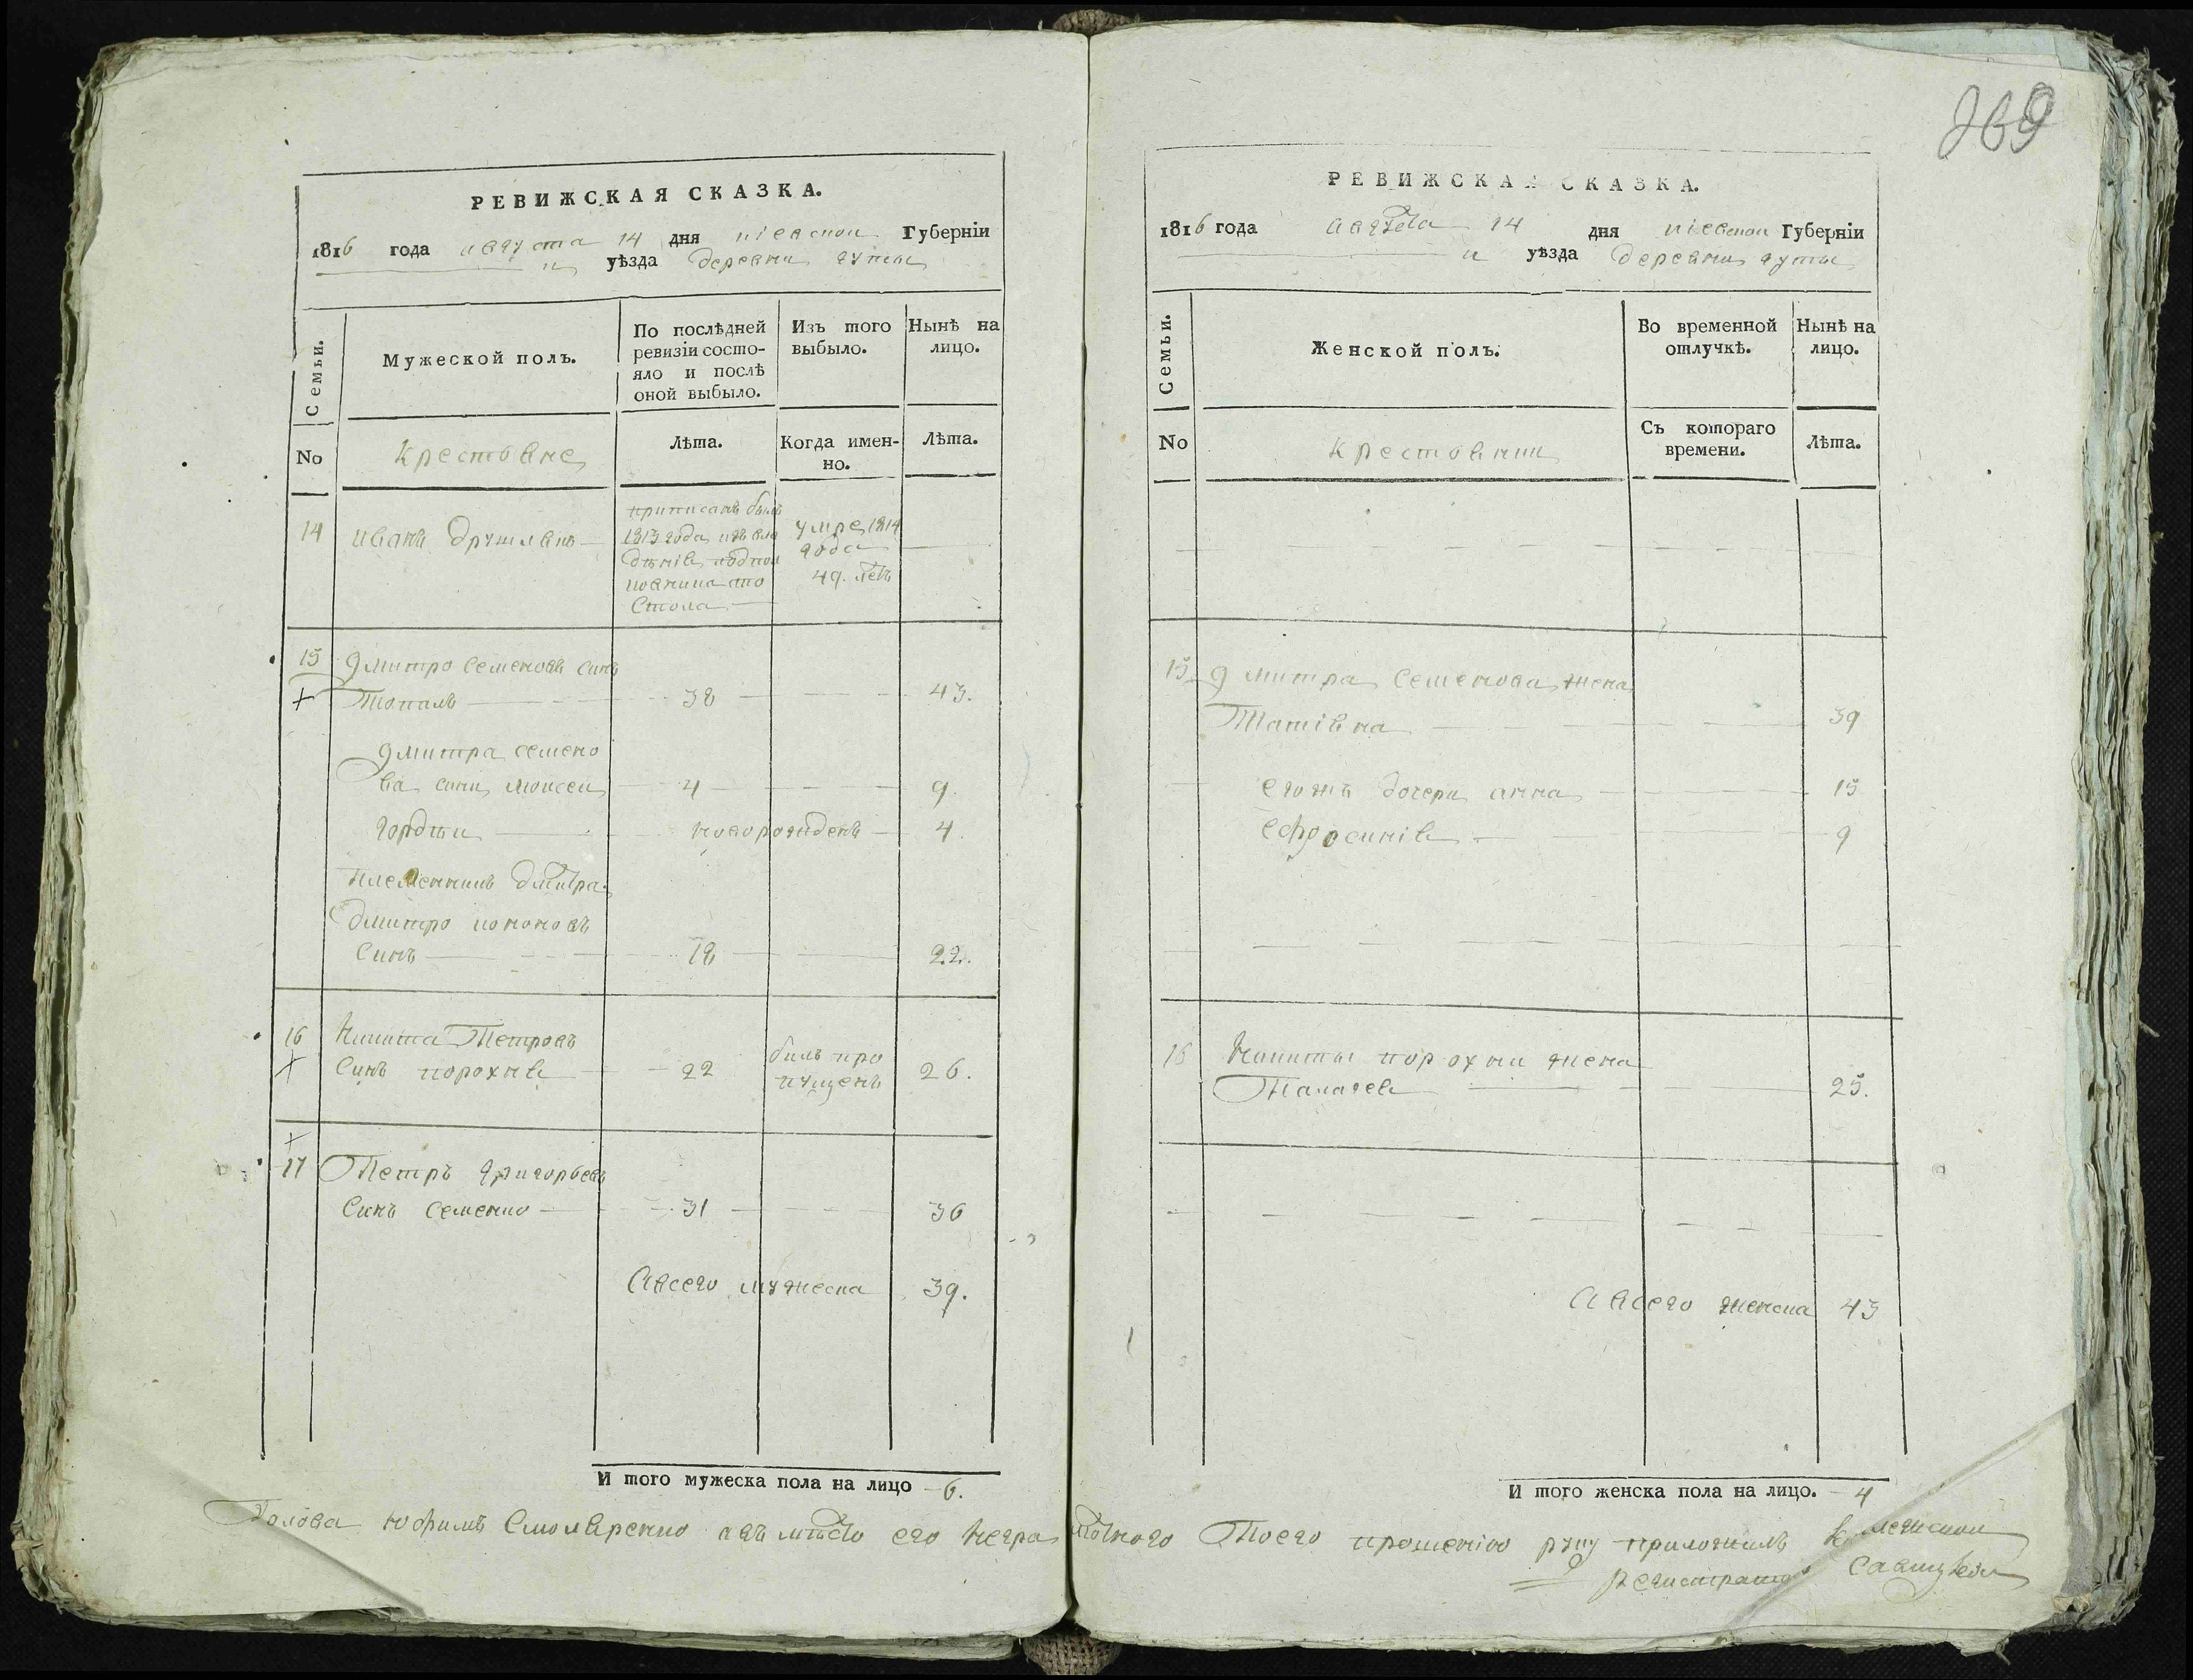 269
РЕВИЖСКАЯ СКАЗКА.
1816 года августа 14 дня кіевской Губерніи
уѣзда деревни гуты
Семьи.
Мужеской полъ.
По послѣдней ревизіи состо-
яло и послѣ
оной выбыло.
Изъ того
выбыло.
Нынѣ на
лицо.
No
крестьяне
Лѣта.
Когда имен-
но.
Лѣта.
14 иванъ
приписанъ былъ
1813 года изъ вла
дѣнія подпол
ковника
умре 1814
года
49. летъ
15 Дмитро Семеновъ синъ
Топаль 38 43.
Дмитра семено
ва сини моисеи 4 9.
гордѣи новорожденъ 4.
племенникъ дмитра
дмитро кононовъ
Синъ 18 22.
16 Никита Петровъ
Синъ порохня 22 билъ про
пущенъ 26.
17 Петръ григорьевъ
Синъ Семенко 31 36
Авсего мужеска 39.
И того мужеска пола на лицо 6.
РЕВИЖСКАЯ СКАЗКА.
1816 года августа 14 дня кіевской Губерніи
уѣзда деревни гуты
Семьи.
Женской полъ.
Во временной
отлучкѣ.
Нынѣ на
лицо.
No
крестьянки
Съ котораго
времени.
Лѣта.
15 Дмитра Семенова жена
Татіяна 39
егожъ дочери анна 15
ефросинія 9
16 Никиты порохни жена
Палагея 25.
Авсего женска 43
И того женска пола на лицо. 4
Голова юфимъ Смоляренко авъместо его неграмотного Поего прошенію руку приложилъ
регистраторъ